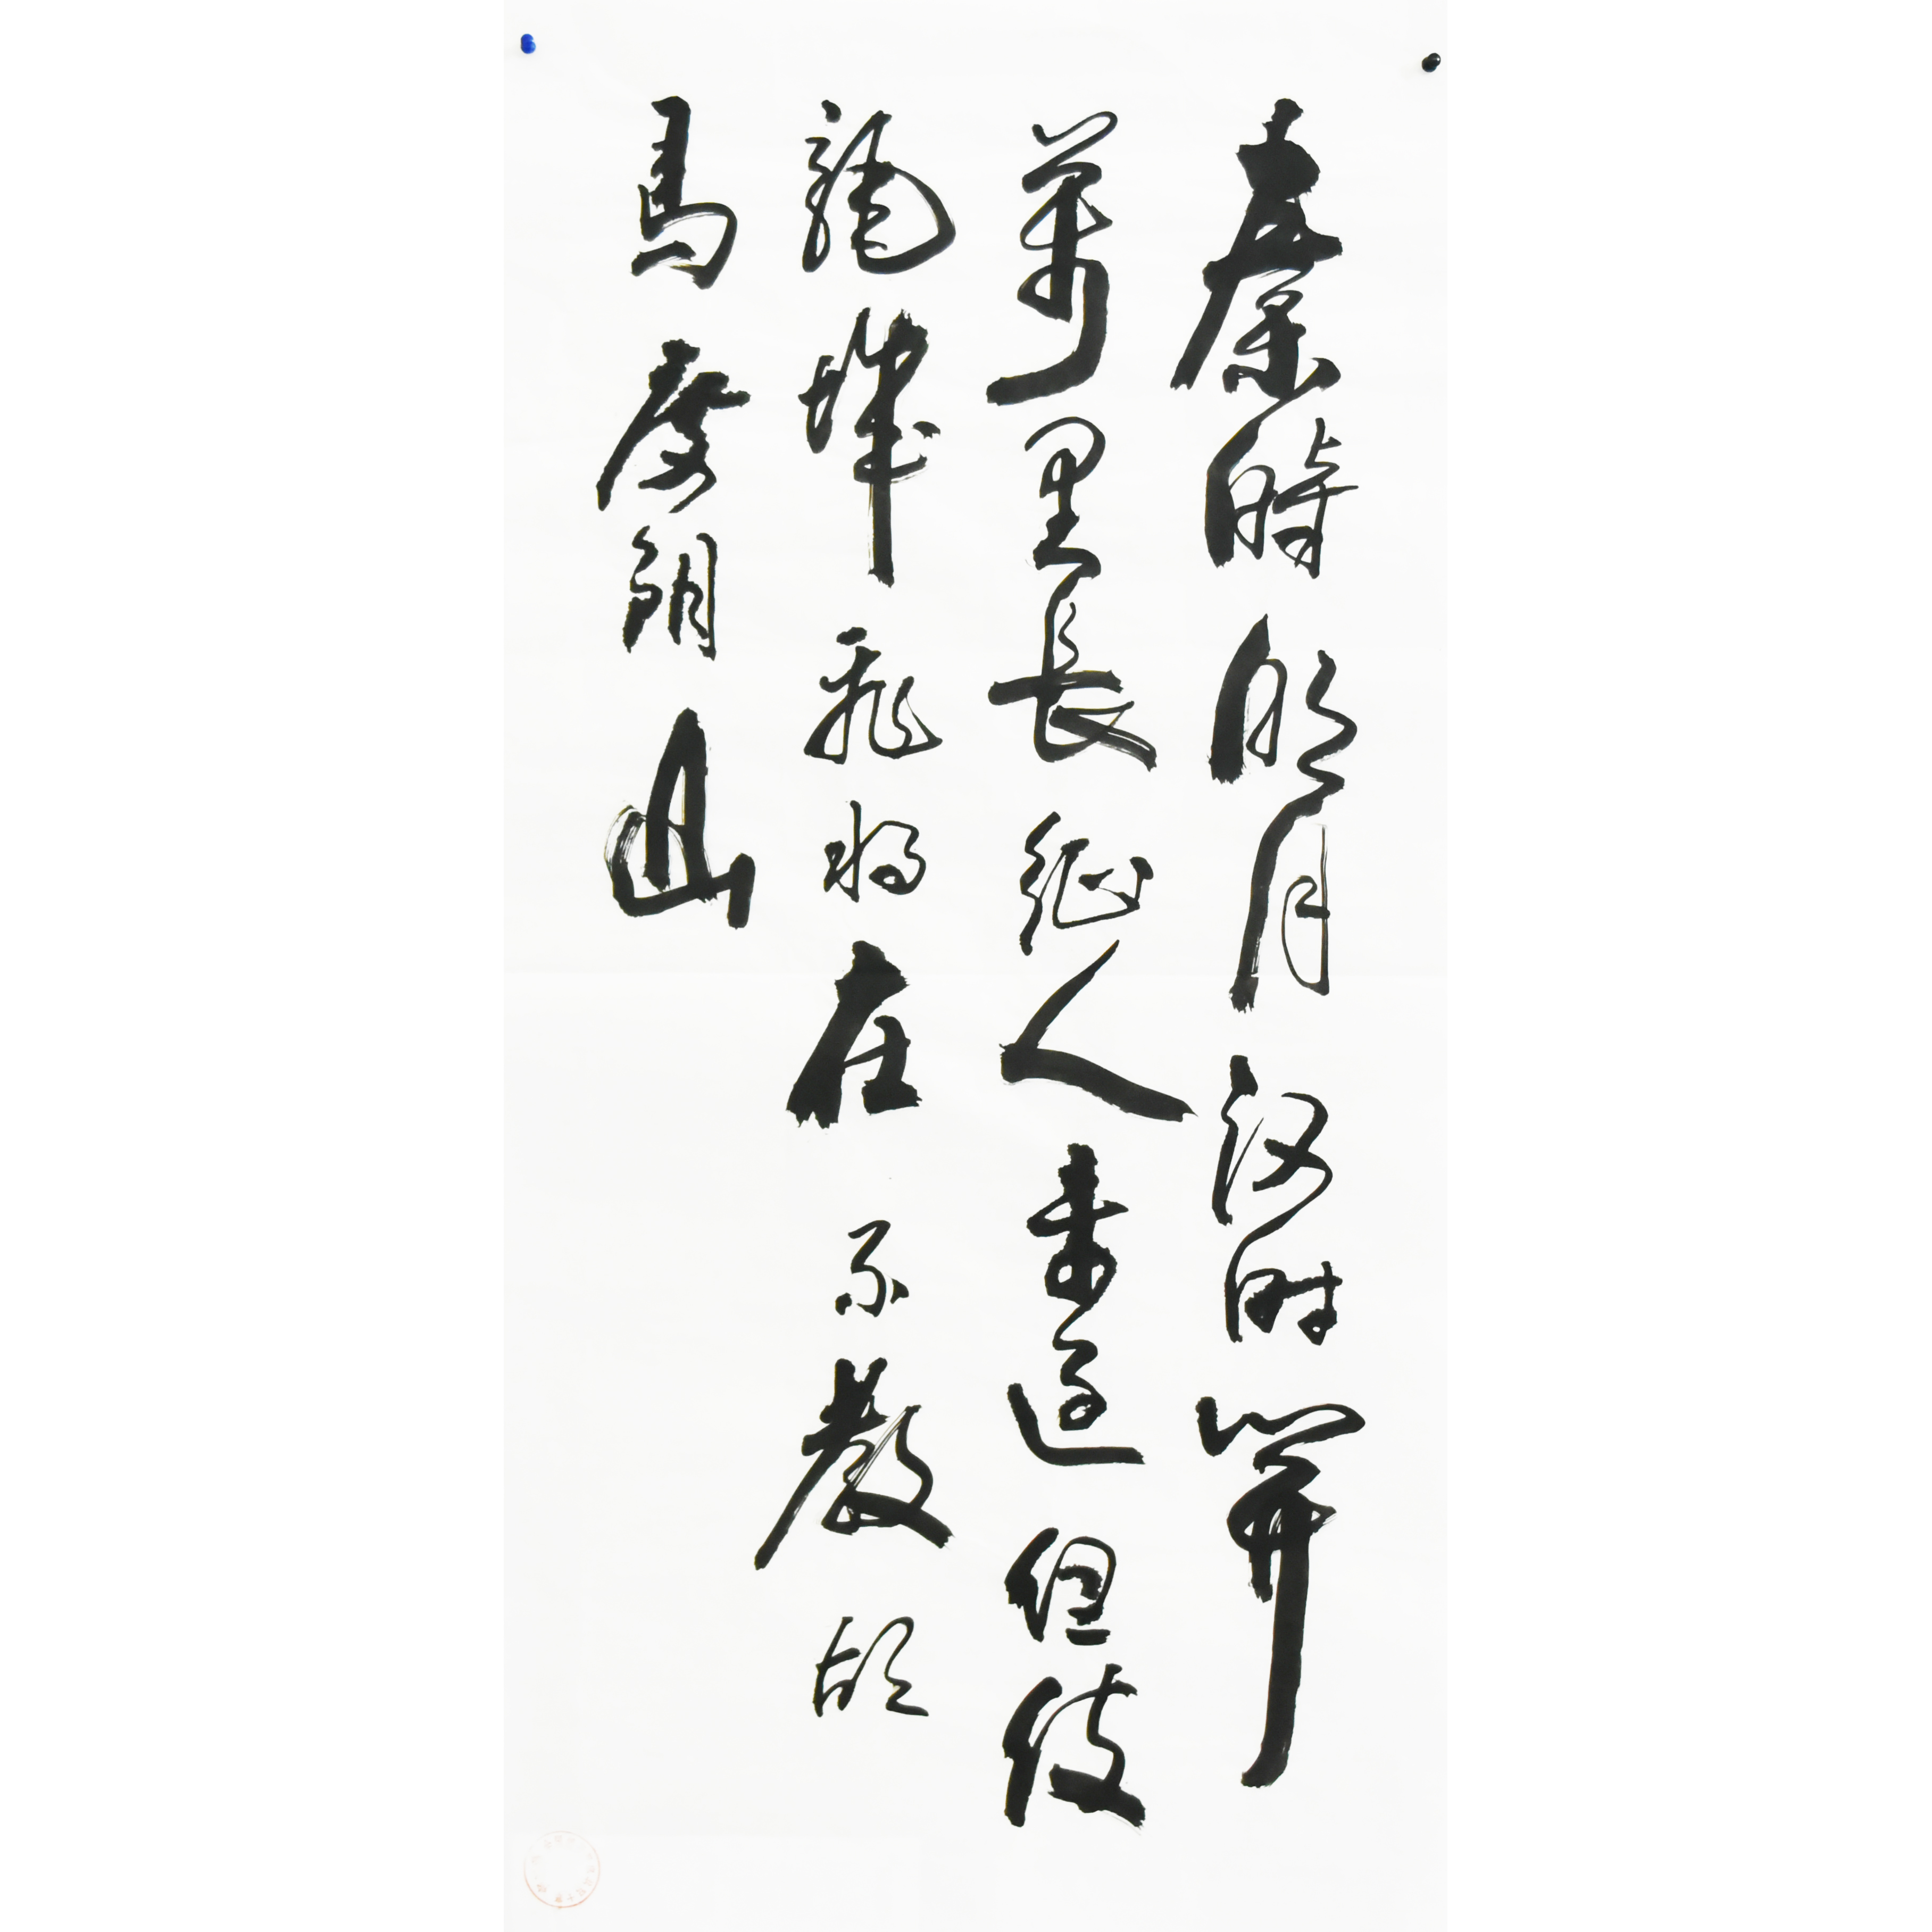 秦時明月漢時關
萬里長征人未還但使
龍城飛將在不教胡
馬度阴山